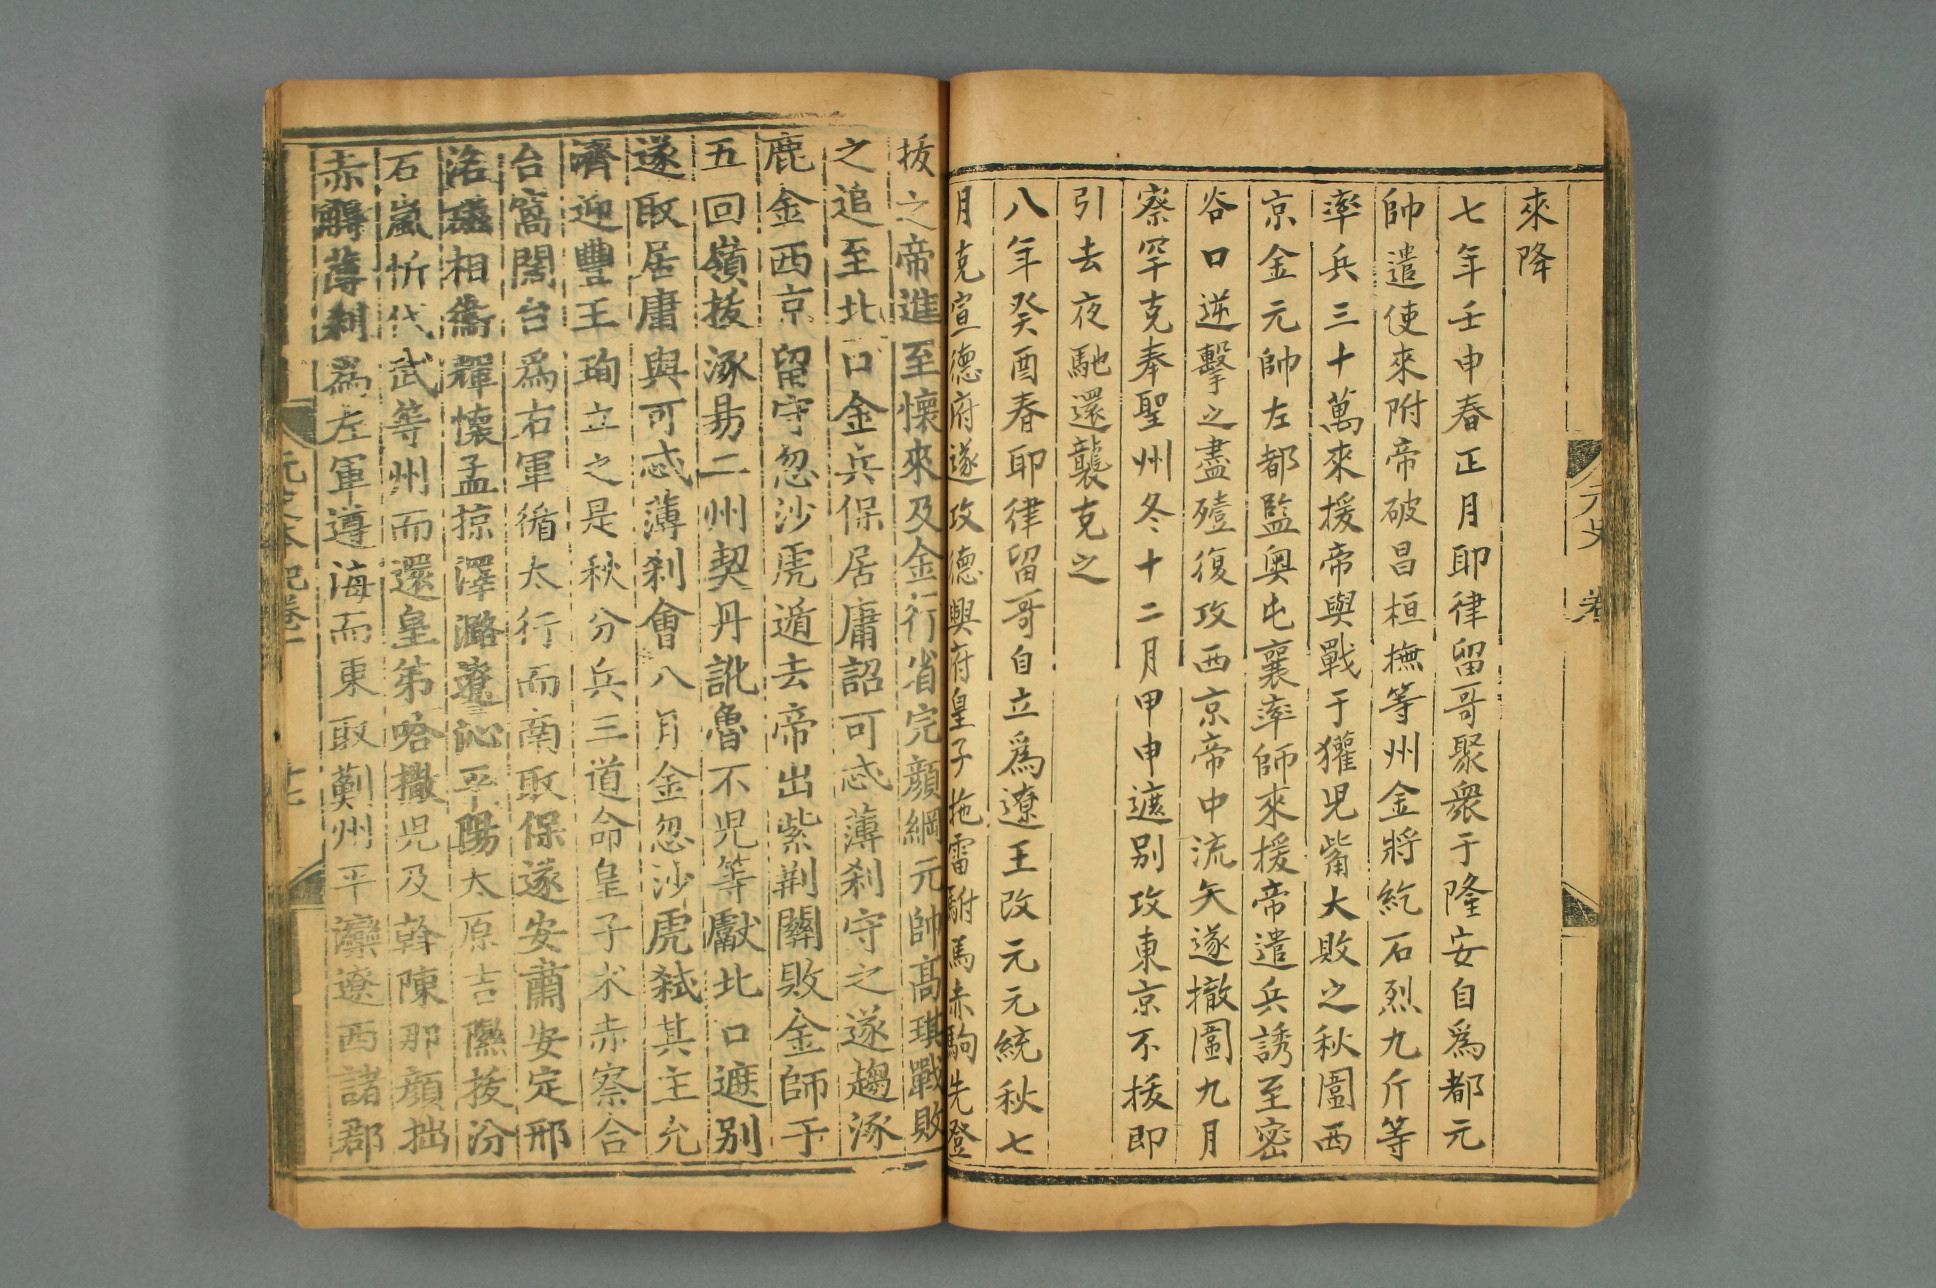 來降
七年壬申春正月耶律留哥聚衆于隆安自爲都元
帥遣使來附帝破昌桓撫等州金將紇石烈九斤等
率兵三十萬來援帝與戰于獾兒觜大敗之秋圍西
京金元帥左都監奥屯襄率師來援帝遣兵誘至密
谷口逆擊之盡殪復攻西京帝中流矢遂撤圍九月
察罕克奉聖州冬十二月甲申遮别攻東京不拔即
引去夜馳還襲克之
八年癸酉春耶律留哥自立爲遼王改元元統秋七
月克宣德府遂攻德興府皇子拖雷駙馬赤駒先登
拔之帝進至懷來及金行省完顔綱元帥高琪戰敗
之追至北口金兵保居庸詔可忒薄剎守之遂趨涿
鹿金西京留守忽沙虎遁去帝出紫荆關敗金師于
五回嶺拔涿易二州契丹訛魯不兒等獻北口遮别
遂取居庸與可忒薄剎會八月金忽沙虎弑其主允
濟迎豐王珣立之是秋分兵三道命皇子朮赤察合
台窩闊台爲右軍循太行而南取保遂安肅安定邢
洺磁相衛輝懷孟掠澤潞遼沁平陽太原吉隰拔汾
石嵐忻代武等州而還皇弟哈撒兒及斡陳那顔拙
赤䚟薄剎爲左軍遵海而東取薊州平灤遼西諸郡
元史 卷
元史本紀卷一
十七